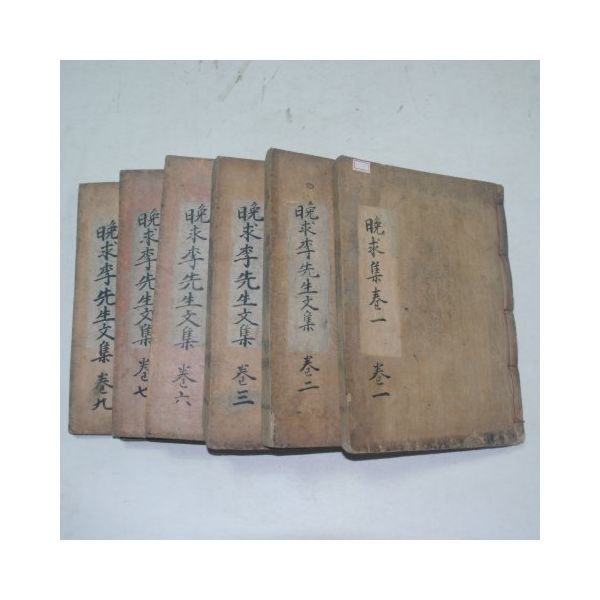 晩求集卷一
卷一
晩求李先生文集
卷二
晩求李先生文集
卷三
晩求李先生文集
卷六
晩求李先生文集
卷七
晩求李先生文集
卷九